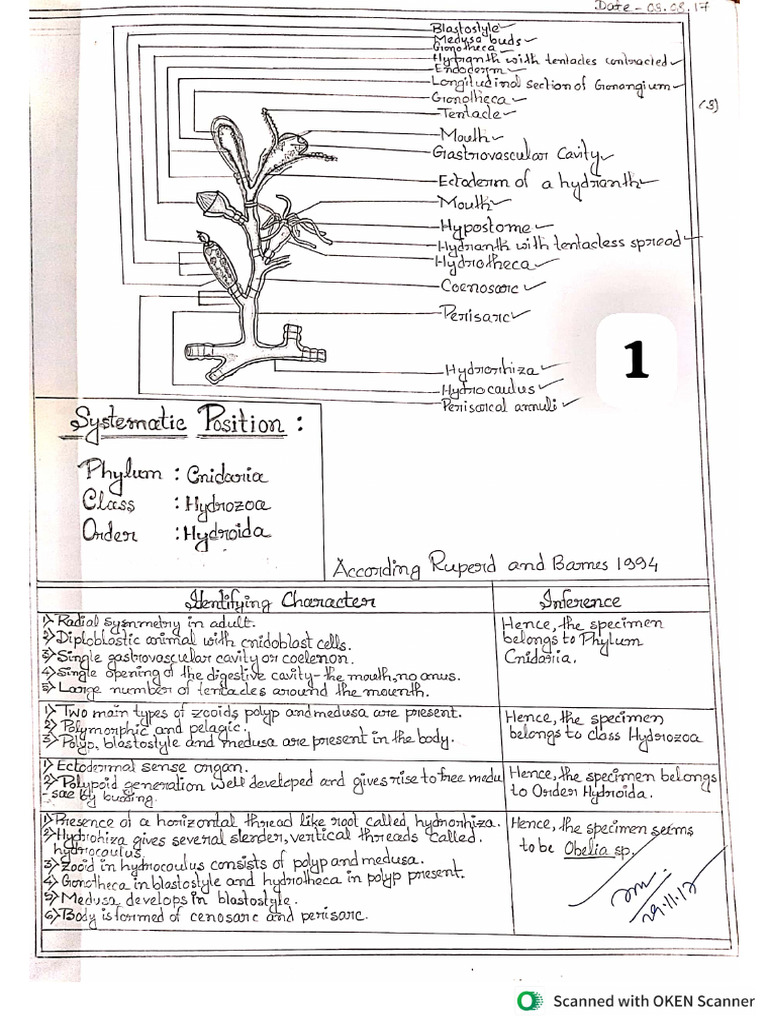 Date - 03.08.17
Blastostyle
Medusa buds
Gonotheca
Hydranth with tentacles contracted
Endoderm
Longitudinal section of Gonangium
(3)
Gonotheca
Tentacle
Mouth
Gastrovascular Cavity
Ectoderm of a hydranth
Mouth
Hypostome
Hydranth with tentacless spread
Hydrotheca
Coenosarc
Perisarc
1
Hydrorhiza
Hydrocaulus
Perisarcal annuli
Systematic Position :
Phylum : Cnidaria
Class : Hydrozoa
Order : Hydroida
According Ruperd and Barnes 1994
Identifying Character
Inference
1) Radial symmetry in adult.
2) Diploblastic animal with cnidoblast cells.
3) Single gastrovascular cavity or coelenon.
4) Single opening of the digestive cavity - the mouth, no anus.
5) Large number of tentacles around the mounth.
Hence, the specimen
belongs to Phylum
Cnidaria.
1) Two main types of zooids polyp and medusa are present.
2) Polymorphic and pelagic.
3) Polyp, blastostyle and medusa are present in the body.
Hence, the specimen
belongs to class Hydrozoa
1) Ectodermal sense organ.
2) Polypoid generation well developed and gives rise to free medu
- sae by budding.
Hence, the specimen belongs
to Order Hydroida.
1) Presence of a horizontal thread like root called, hydrorhiza.
2) Hydrohiza gives several slender, vertical threads called.
hydrocoulus
3) Zooid in hydrocoulus consists of polyp and medusa.
4) Gonotheca in blastostyle and hydrotheca in polyp present.
5) Medusa develops in blastostyle.
6) Body is formed of cenosarc and perisarc.
Hence, the specimen seems
to be Obelia sp.
29.11.17
Scanned with OKEN Scanner